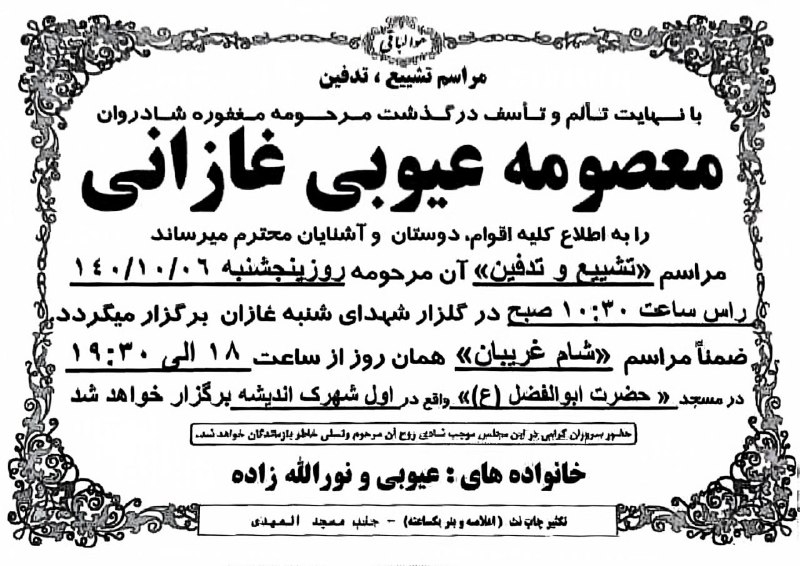 هوالباقی
مراسم تشییع ، تدفین
با نهایت تألم و تأسف درگذشت مرحومه مغفوره شادروان
معصومه عیوبی غازانی
را به اطلاع کلیه اقوام، دوستان و آشنایان محترم میرساند
مراسم «تشییع و تدفین» آن مرحومه روزپنجشنبه ۱۴۰/۱۰/۰۶
راس ساعت ۱۰:۳۰ صبح در گلزار شهدای شنبه غازان برگزار میگردد.
ضمناً مراسم «شام غریبان» همان روز از ساعت ۱۸ الی ۱۹:۳۰
در مسجد « حضرت ابوالفضل (ع)» واقع در اول شهرک اندیشه برگزار خواهد شد
حضور سروران گرامی در این مجلس موجب شادی روح آن مرحوم وتسلی خاطر بازماندگان خواهد شد.
خانواده های : عیوبی و نورالله زاده
تکثیر چاپ نت (اعلامیه و بنر یکساعته) - جنب مسجد المهدی